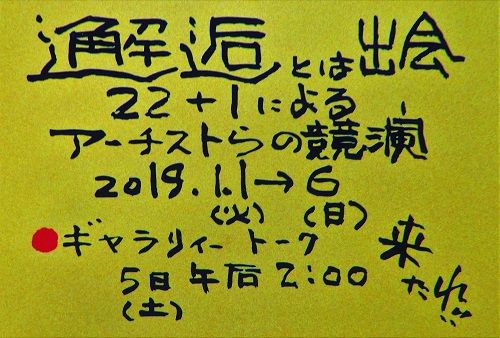 邂逅とは出会
22+1による
アーチストらの競演
2019.1.1→6
(火) (日)
●ギャラリィートーク
5日午后2:00
(土)
来たれ!!